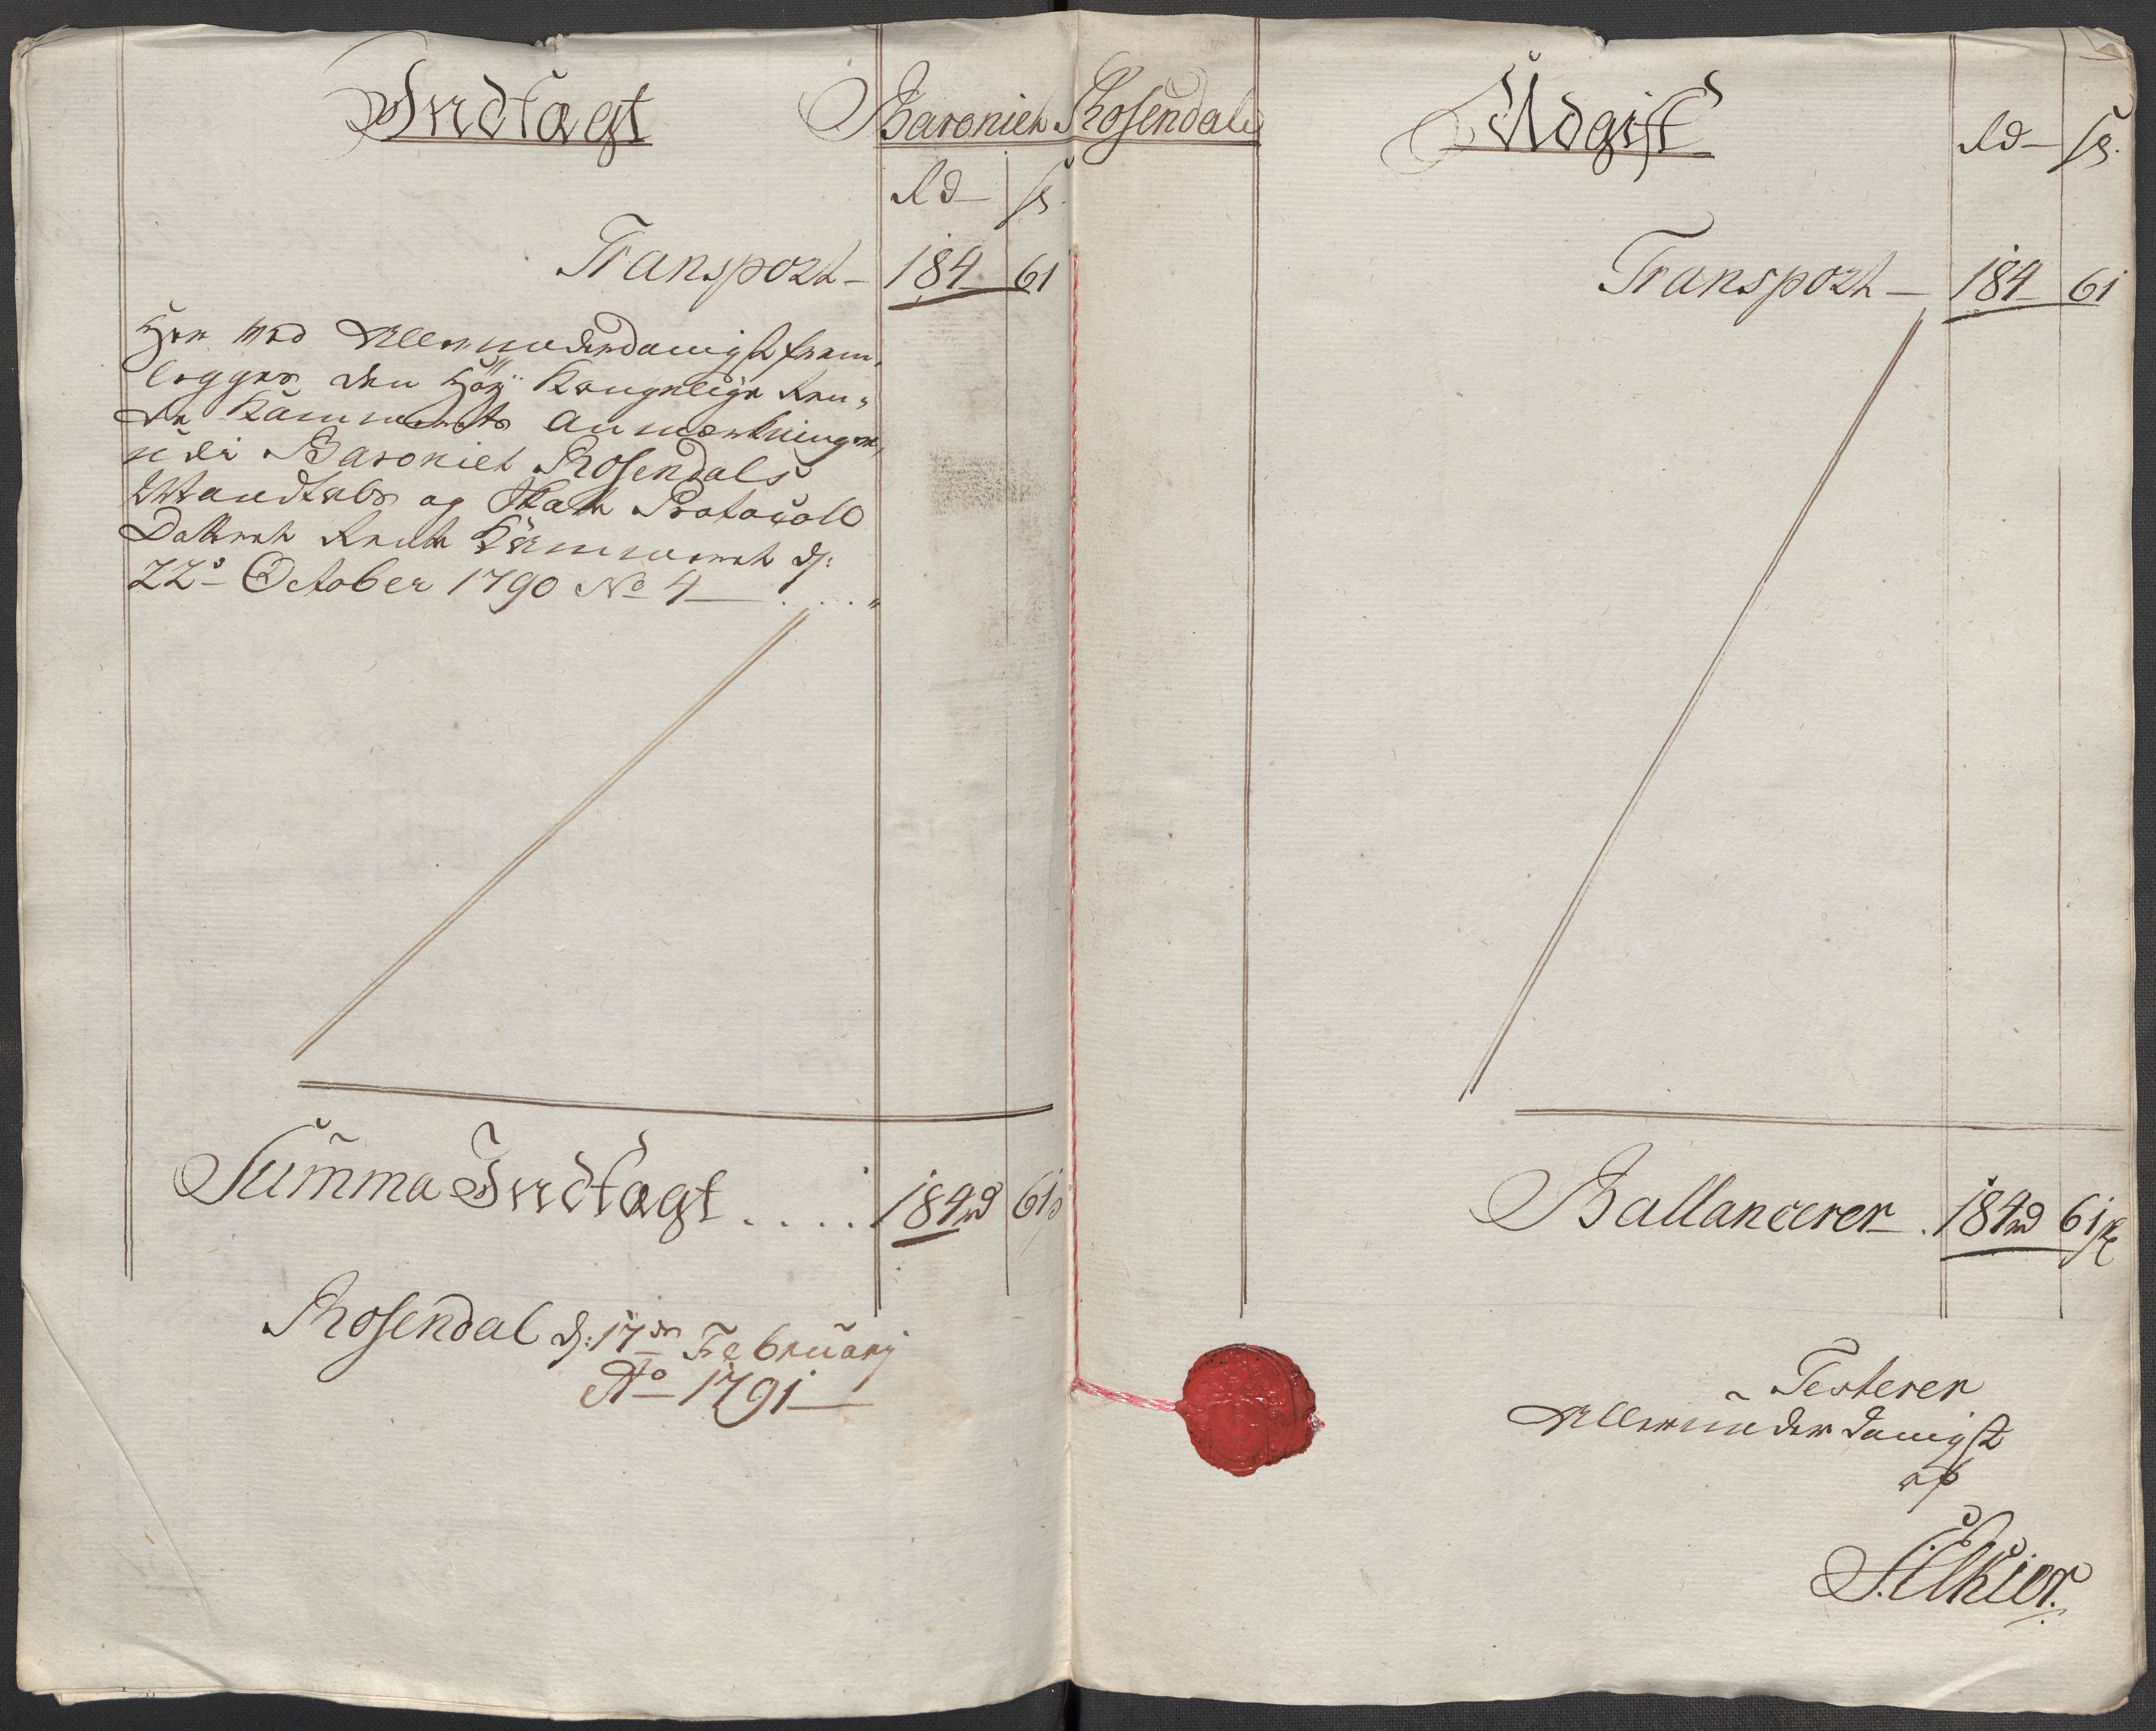 Indtægt
Baroniet Rosendals
Rd ß.
Transport 184 61
Her med Allerunderdanigst frem-
legges den Høy Kongelige Ren-
te Kammers Anmærkninger
udi Baroniet Rosendals
Mandtals og Skatte Protocoll
Datteret Rente Kammeret d:
22de October 1790 No 4
Summa Indtægt .... 184 rd 61 ß
Rosendal d: 17den February
Ao 1791
Udgift
Rd ß.
Transport 184 61
Ballancerer. 184 rd 61 ß
Testerer
Allerunderdanigst
af